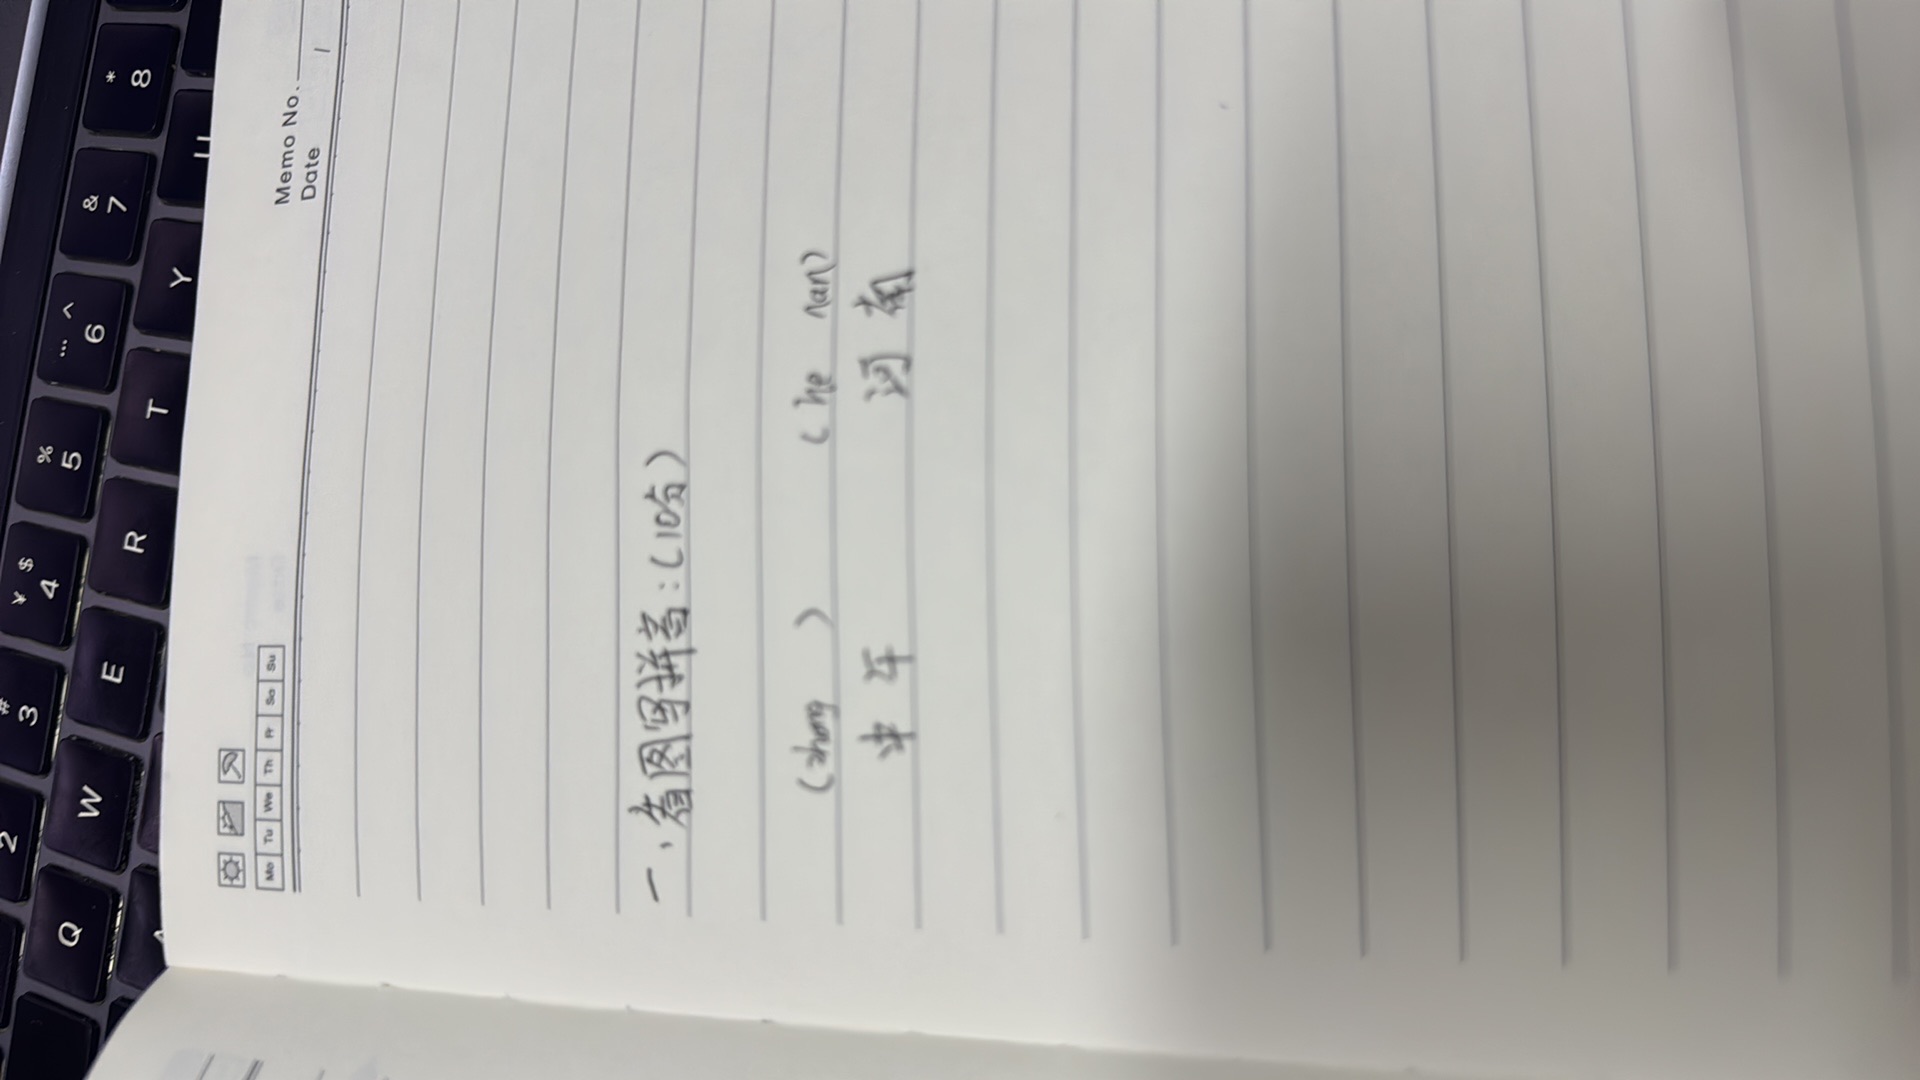 Memo No.
Date /
Mo Tu We Th Fr Sa Su
一、看图写拼音:(10分)
(zhong ) (he nan)
中 午 河 南
* 8
& 7
… ^ 6
% 5
¥ $ 4
# 3
2
U
Y
T
R
E
W
Q
A